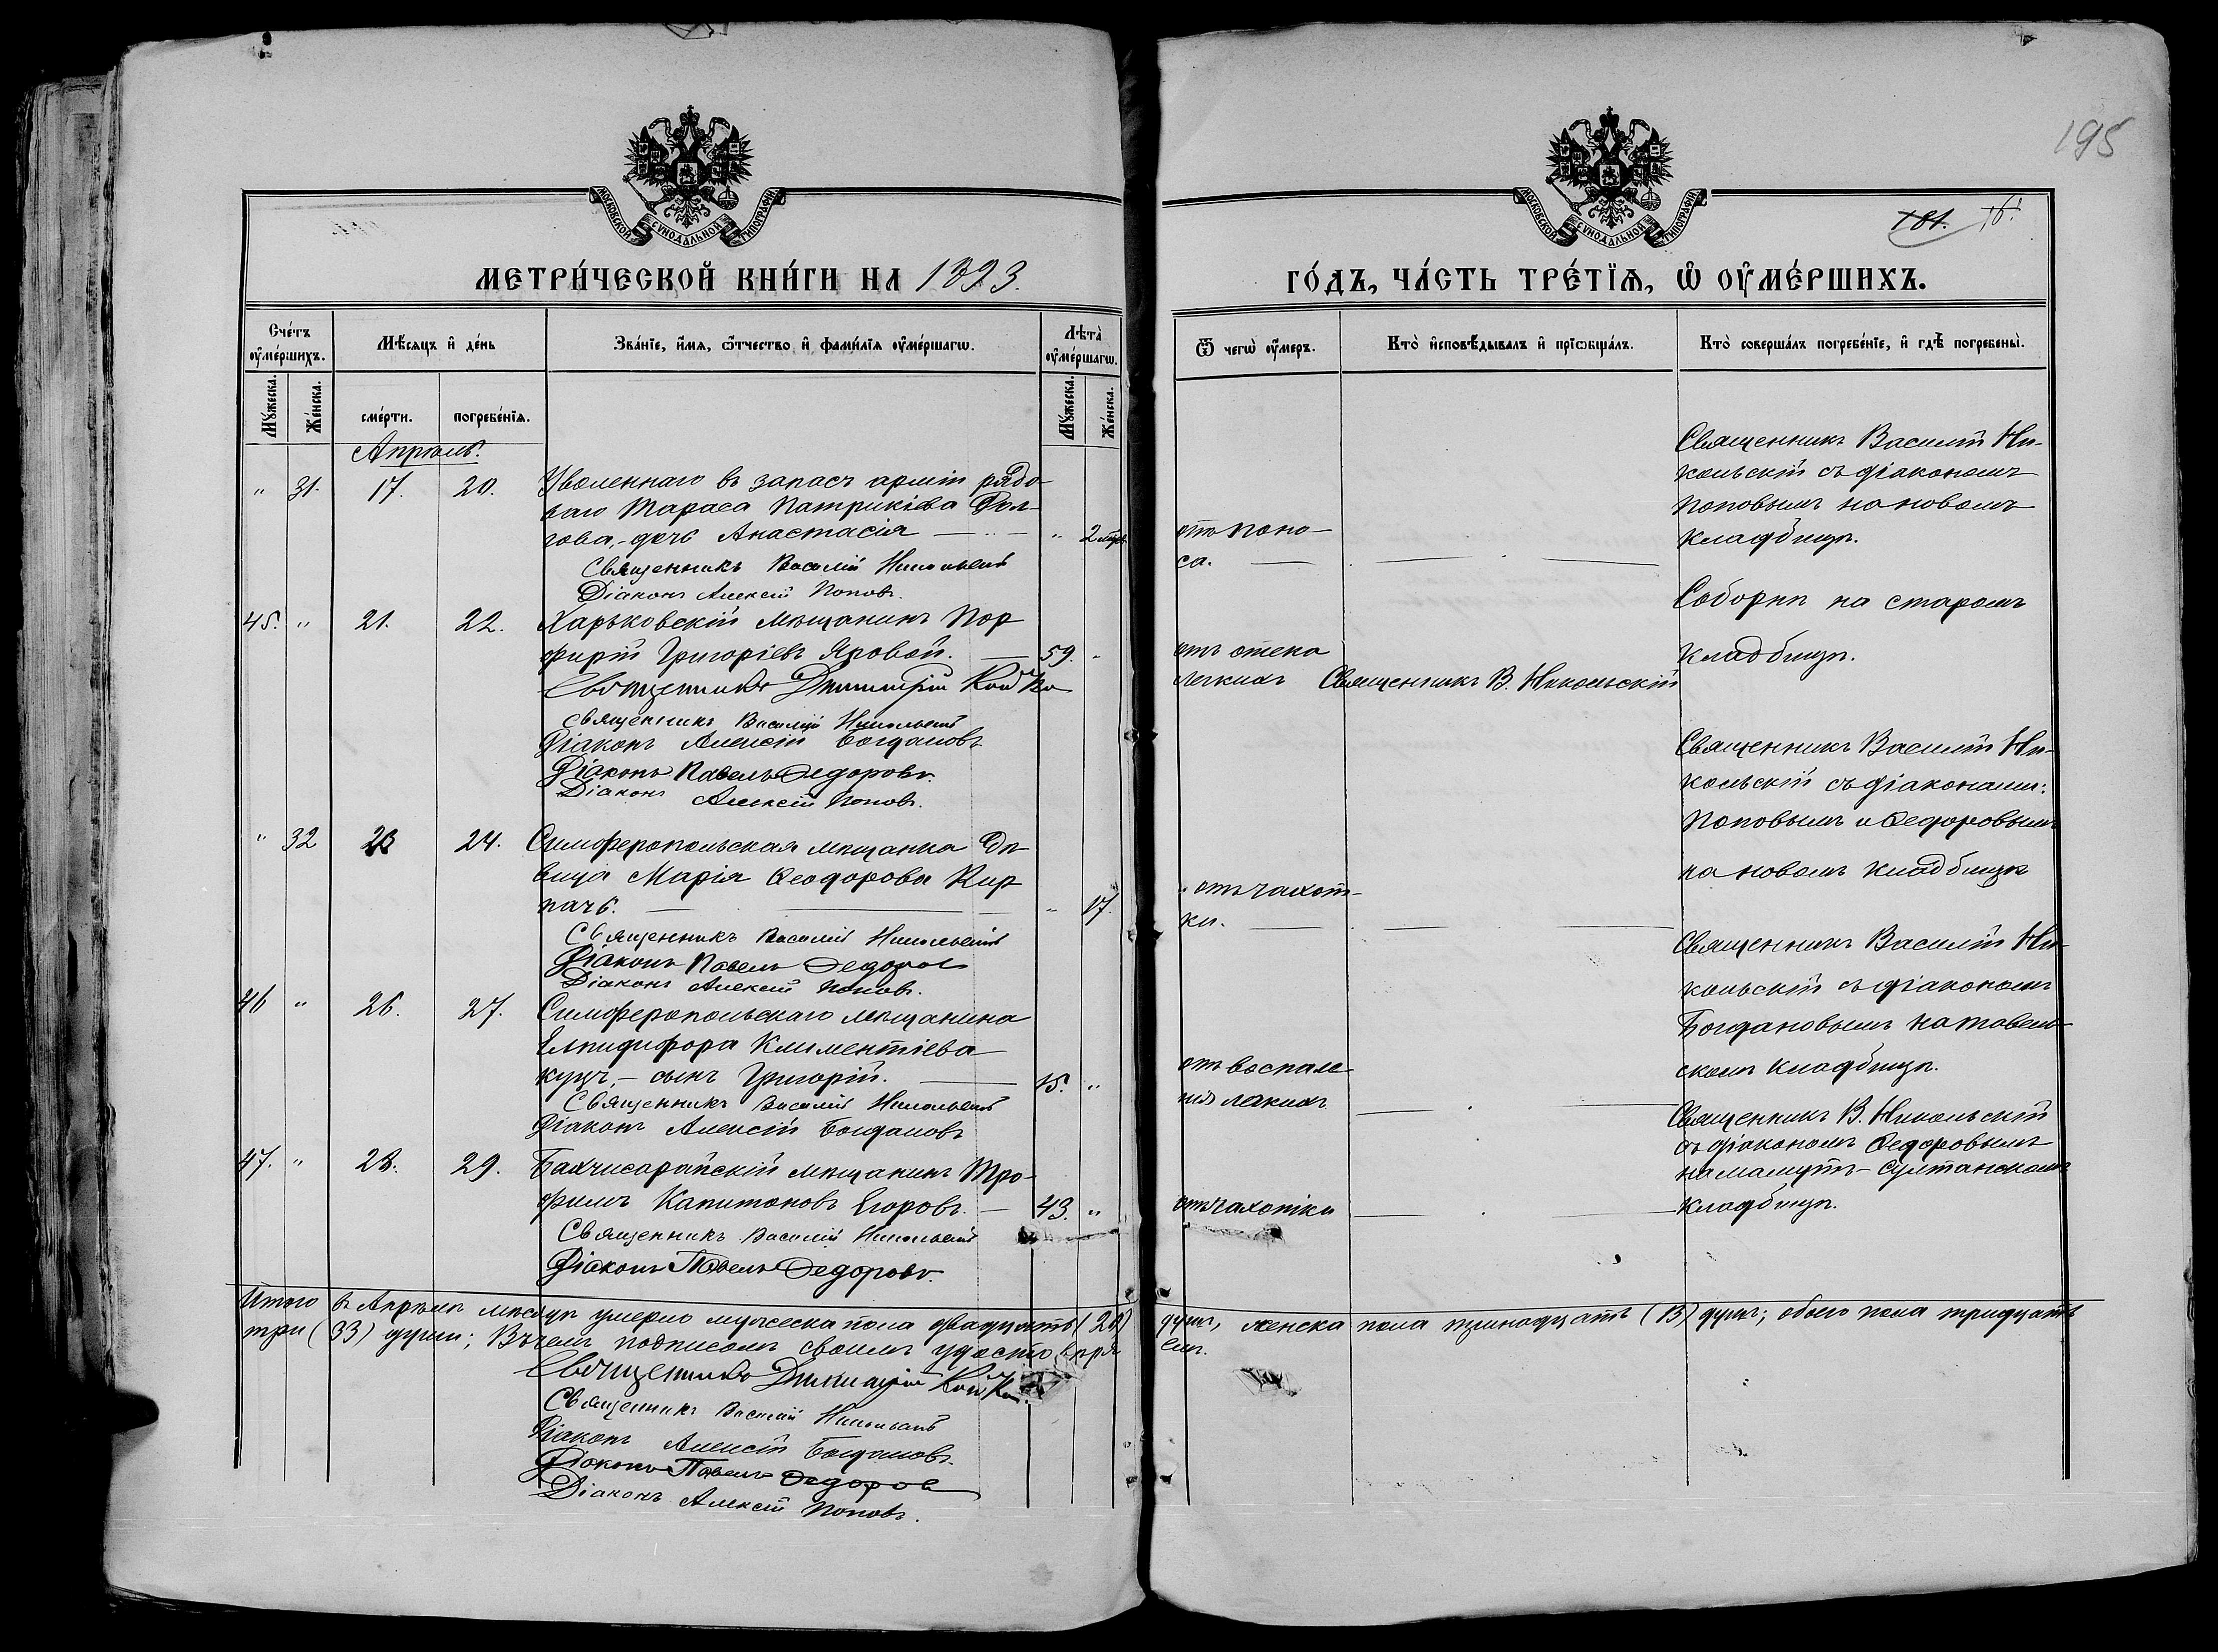 195
МОСКОВСКОЙ СУНОДАЛЬНОЙ ТИПОГРАФІИ
МОСКОВСКОЙ СУНОДАЛЬНОЙ ТИПОГРАФІИ
181. 16.
МЕТРИ́ЧЕСКОЙ КНИ́ГИ НА 1893.
ГО́ДЪ, ЧА́СТЬ ТРЕ́ТЇѦ, Ѽ ОУ҆МЕ́РШИХЪ.
Сче́тъ оу҆ме́ршихъ.
Мѣ́сѧцъ и҆ де́нь
Зва́нїе, и҆́мѧ, ѻ҆́тчество и҆ фами́лїѧ оу҆ме́ршагѡ.
Лѣ́та оу҆ме́ршагѡ.
Ѿ чегѡ̀ оу҆́меръ.
Кто̀ и҆сповѣ́дывалъ и҆ прїѡбща́лъ.
Кто̀ соверша́лъ погребе́нїе, и҆ гдѣ̀ погребены̀.
Мꙋ́жеска. Же́нска. сме́рти. погребе́нїѧ. Мꙋ́жеска. Же́нска.
Апрѣль.
" 31. 17. 20. Уволеннаго въ запасъ арміи рядо-
ваго Тараса Патрикіева Дол-
гова,- дочь Анастасія " 2
Священникъ Василій Никольскій
Діаконъ Алексій Поповъ.
отъ поно-
са.
Священникъ Василій Ни-
кольскій съ діакономъ
Поповымъ на новомъ
кладбищѣ.
45. " 21. 22. Харьковскій мѣщанинъ Пор
фирій Григоріевъ Яровой. 59. "
Священникъ Димитрій Койко
Священникъ Василій Никольскій
Діаконъ Алексій Богдановъ
Діаконъ Павелъ Федоровъ.
Діаконъ Алексій Поповъ.
отъ отека
легкихъ Священникъ В. Никольскій
Соборнѣ на старомъ
кладбищѣ.
" 32 23 24. Симферопольская мѣщанка дѣ
вица Марія Ѳеодорова Кир
пачъ. " 17.
Священникъ Василій Никольскій
Діаконъ Павелъ Федоровъ
Діаконъ Алексій Поповъ.
отъ чахот-
ки.
Священникъ Василій Ни-
кольскій съ діаконами:
Поповымъ и Ѳедоровымъ
на новомъ кладбищѣ
46 " 26. 27. Симферопольскаго мѣщанина
Елпидифора Климентіева
Куцъ,- сынъ Григорій. 15. "
Священникъ Василій Никольскій
Діаконъ Алексій Богдановъ
отъ воспале
нія легкихъ
Священникъ Василій Ни-
кольскій съ діакономъ
Богдановымъ на
скомъ кладбищѣ.
47. " 28. 29. Бахчисарайскій мѣщанинъ Тро-
фимъ Капитоновъ Егоровъ. 43. "
Священникъ Василій Никольскій
Діаконъ Павелъ Федоровъ.
отъ чахотки
Священникъ В. Никольскій
съ діакономъ Ѳедоровымъ
на мамутъ-султанскомъ
кладбищѣ.
Итого въ Апрѣлѣ мѣсяцѣ умерло мужеска пола двадцать (20) душъ, женска пола тринадцать (13) душъ; обоего пола тридцать
три (33) души; Въ чемъ подписомъ своимъ удостовѣря емъ.
Священникъ Димитрій Койко
Священникъ Василій Никольскій
Діаконъ Алексій Богдановъ.
Діаконъ Павелъ Федоровъ
Діаконъ Алексій Поповъ.